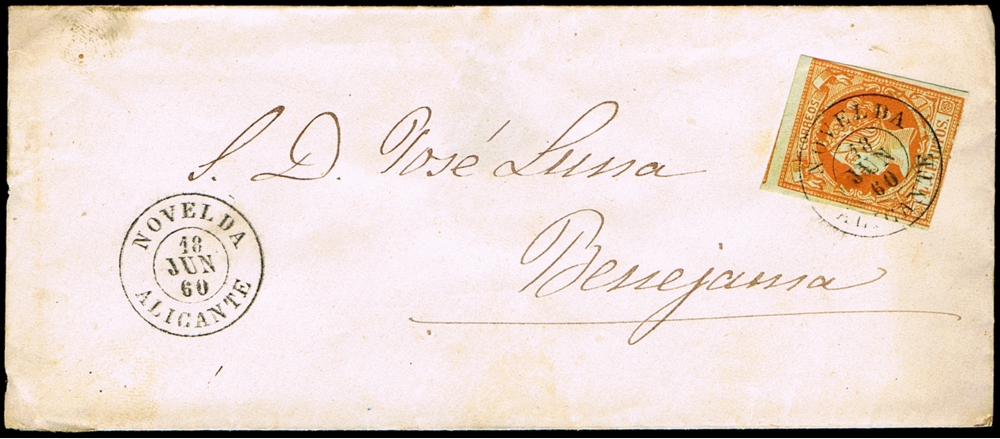 S. D. José Luna
Benejama
NOVELDA
18
JUN
60
ALICANTE
CORREOS
NOVELDA
18
JUN
60
ALICANTE